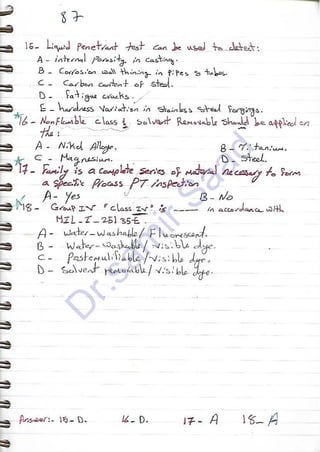 87
15- Liquid Penetrant test can be used to detect:
A - internal Porosity in casting.
B - Corrosion wall thining in Pipes & tubes.
C - Carbon content of steel.
D - Fatigue cracks.
E - hardness Variation in stainless steel Forgings.
16- Nonflamble class & solvent Removable should be applied on
the:
A - Nikel Alloys. B - Titanium.
C - Magnesium. D - Steel.
17- Family is a complete series of material necessary to Form
a specific Process PT inspection.
A- yes B- No
18- Group IV "class IV" is ______ in accordance with
MIL-I-25135E.
A- water-washable/Fluorescent.
B - Water-washable/visible dye.
C - Postemulifiable/visible dye.
D - Solvent removable/visible dye.
Dr.Samir Saad
Answer:- 15-D. 16-D. 17-A 18-A